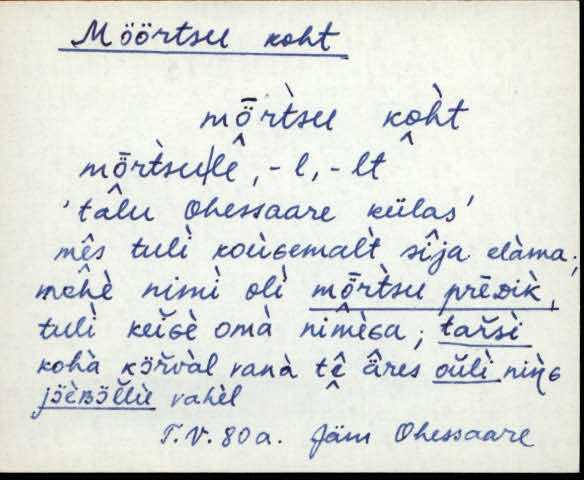 Möörtsu koht
mȫr̀tsu koh̀t
mȫr̀tsu|lê, -l, -lt
'tâlu Ohessaare külas'
mês tulì koùGemalt̀ sîja elàma;
mehè nimì oli mȫr̀tsu prēDik̀,
tulì keìGè omà nimèGa; tar̆sì
kohà kɔ̈r̆val vanà tê âres oŭli niŋG
jɔ̈èBɔ̈l̆lù vahèl
T.V. 80a. Jäm Ohessaare